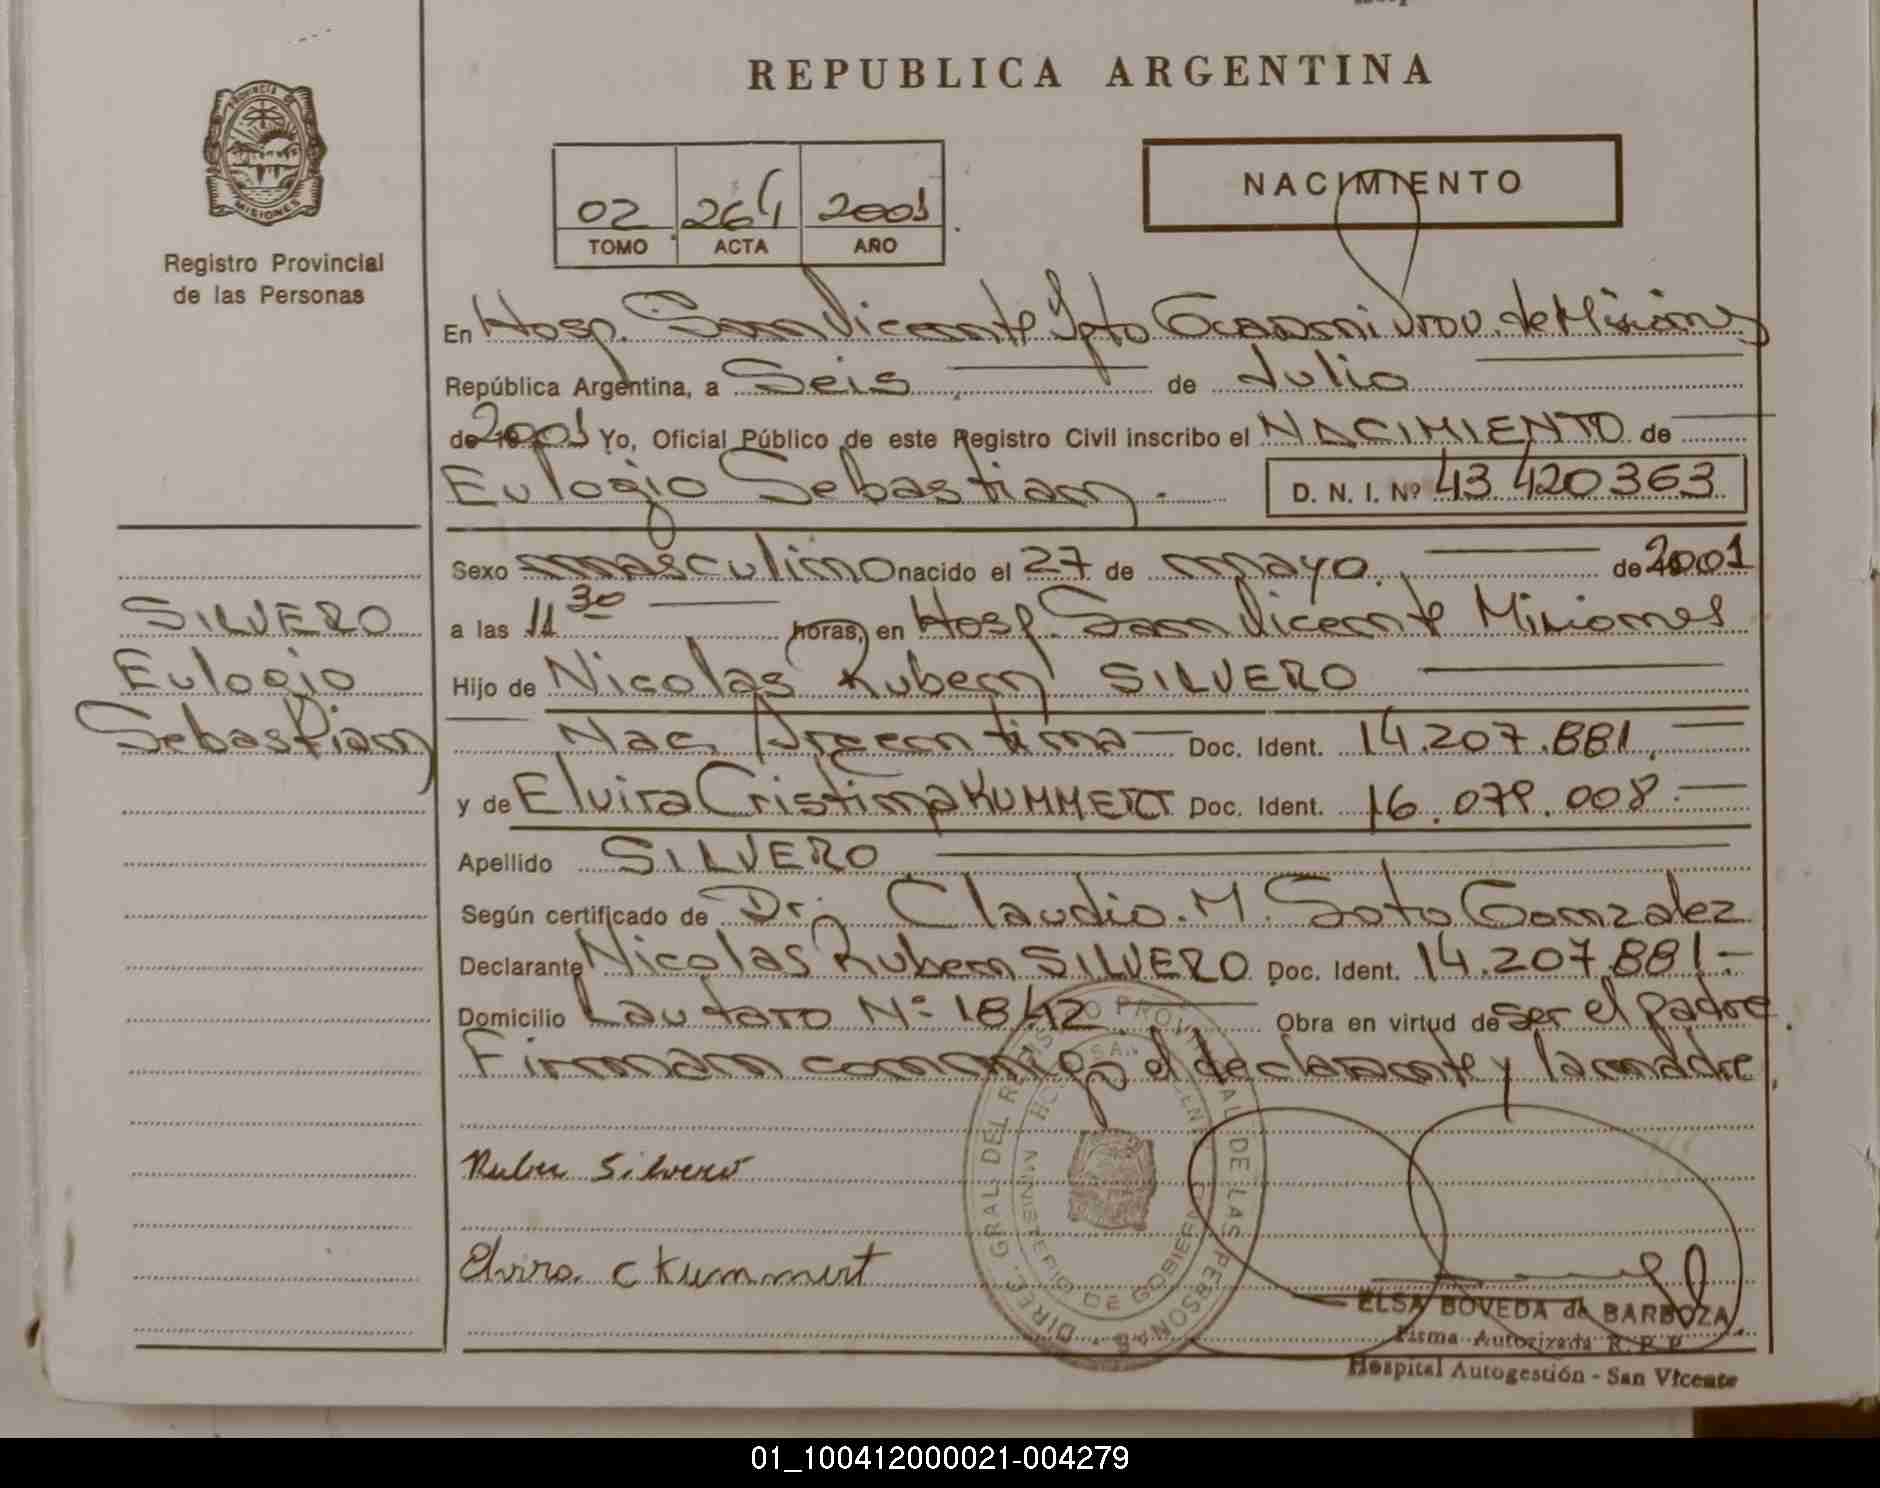 REPUBLICA ARGENTINA
PROVINCIA DE
MISIONES
Registro Provincial
de las Personas
NACIMIENTO
02 264 2001
TOMO ACTA AÑO
En Hosp. San Vicente Dpto Guarani Prov. de Misiones
República Argentina, a Seis de Julio
de 2001 Yo, Oficial Público de este Registro Civil inscribo el NACIMIENTO de
Eulogio Sebastian. D. N. I. Nº 43 420363
Sexo masculino nacido el 27 de mayo de 2001
SILVERO
a las 11 30 horas, en Hosp. San Vicente Misiones
Eulogio
Hijo de Nicolas Ruben SILVERO
Sebastian
Nac. Argentina Doc. Ident. 14.207.881.
y de Elvira Cristina KUMMERT Doc. Ident. 16.079.008.
Apellido SILVERO
Según certificado de Dr. Claudio. M. Soto Gonzalez
Declarante Nicolas Ruben SILVERO Doc. Ident. 14.207.881-
Domicilio Lautaro Nº 1842 Obra en virtud de ser el padre.
Firman conmigo el declarante y la madre.
Ruben Silvero
Elvira C Kummert
DIREC. GRAL DEL REGISTRO PROVINCIAL DE LAS PERSONAS
MINISTERIO DE GOBIERNO
ELSA BOVEDA de BARBOZA
Firma Autorizada R. P. P.
Hospital Autogestión - San Vicente
01_100412000021-004279